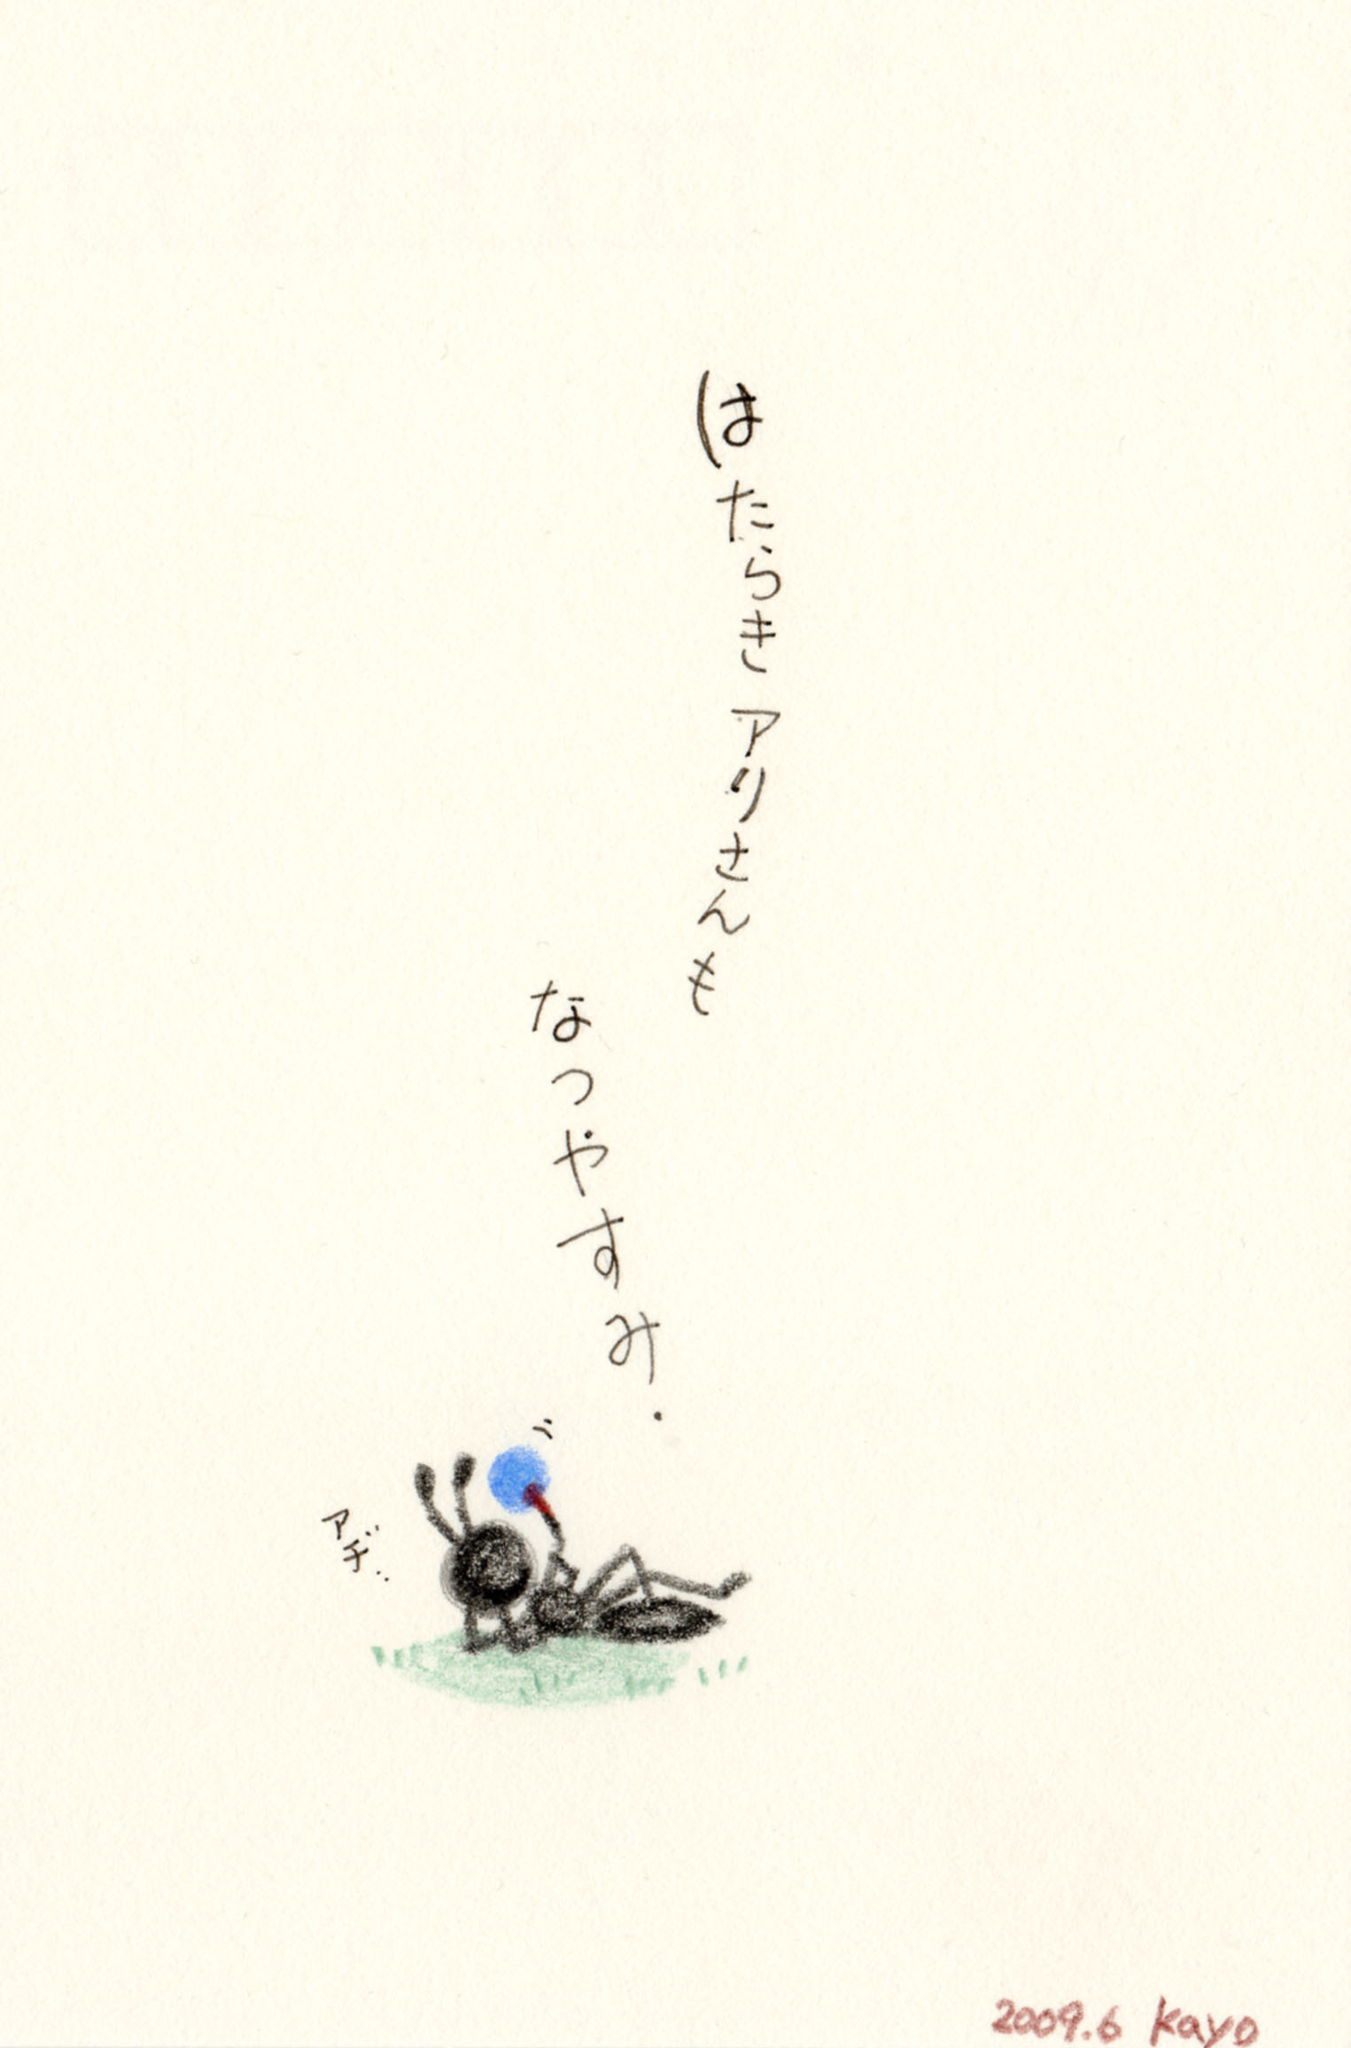 はたらきアリさんも
なつやすみ.
アヂ..
2009.6 Kayo